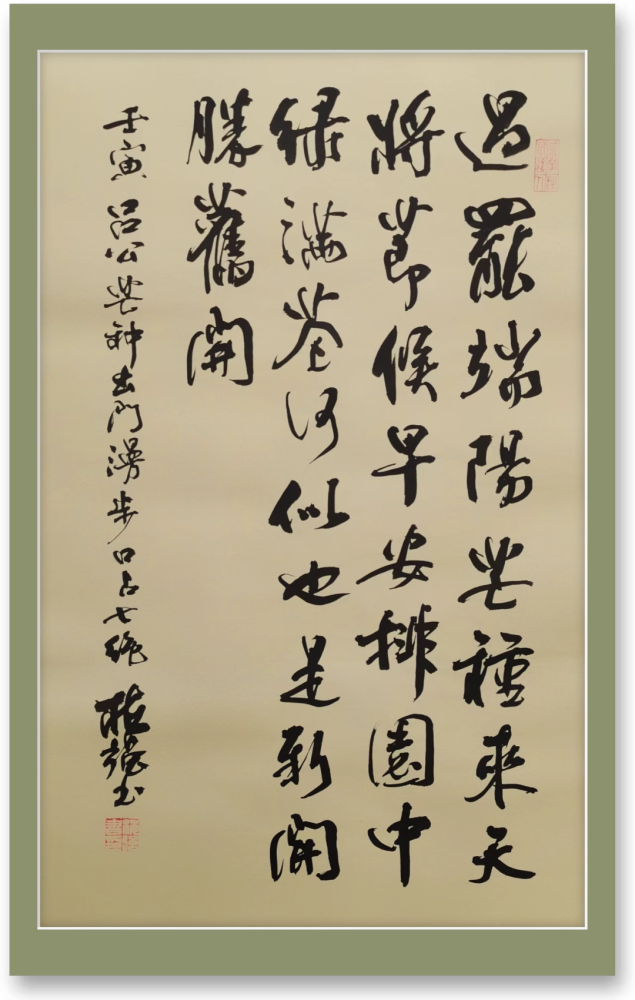 過罷端陽芒種來天
將節候早安排園中
綠滿花何似也是新開
勝舊開
壬寅呂公芒種出門漫步口占七絕書